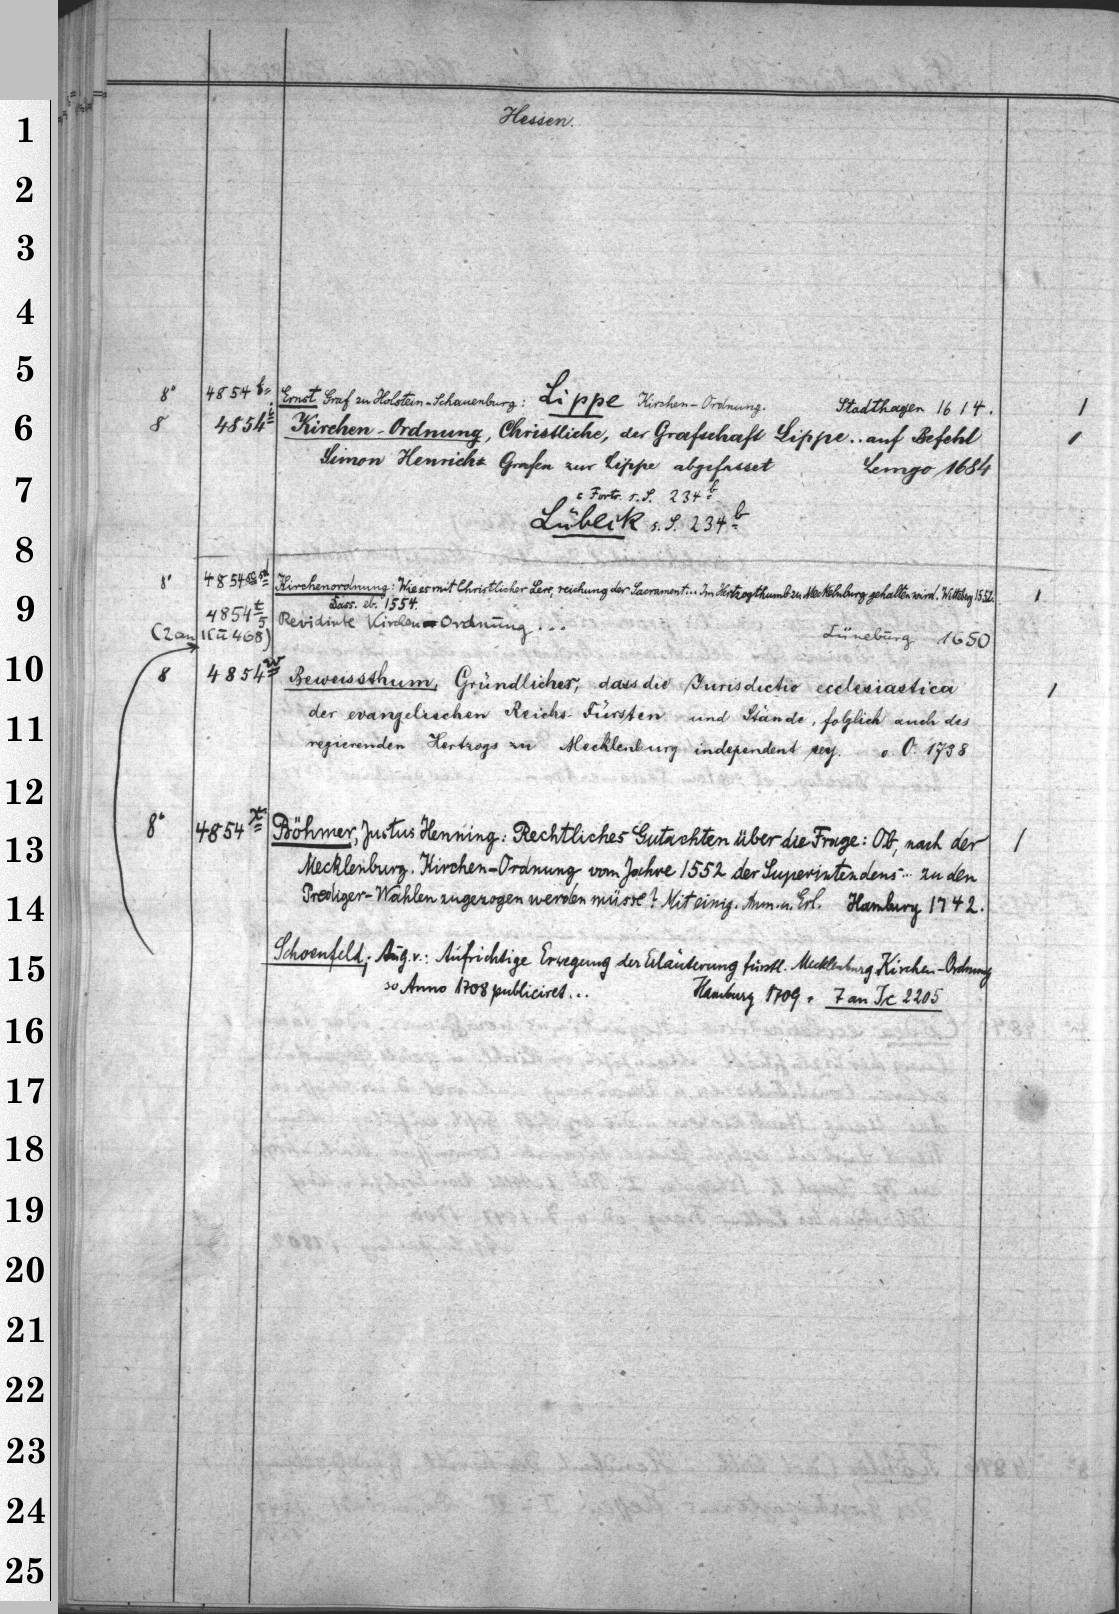 Hessen.
8° 4854 b= Ernst Graf zu Holstein-Schauenburg: Lippe Kirchen-Ordnung. Stadthagen 1614. 1
8 4854 Kirchen-Ordnung, Christliche, der Grafschaft Lippe.. auf Befehl 1
Simon Henrichs Grafen zur Lippe abgefasset Lemgo 1684
Forts. s. S. 234 b
Lübeck s. S. 234 b
8° 4854 Kirchenordnung: Wie es mit Christlicher Lere, reichung der Sacrament... Im Hertzogthumb zu Meckelnburg gehalten wird. Wittebg 1552. 1
Dass. eb. 1554.
4854 t/5 Revidirte Kirchen-Ordnung... Lüneburg 1650
(2 an 468)
8 4854 w Beweissthum, Gründlicher, dass die Jurisdictio ecclesiastica 1
der evangelischen Reichs-Fürsten und Stände, folglich auch des
regierenden Hertzogs zu Mecklenburg independent sey. o. O. 1738
8° 4854 x Böhmer, Justus Henning: Rechtliches Gutachten über die Frage: Ob, nach der 1
Mecklenburg. Kirchen-Ordnung vom Jahre 1552 der Superintendens... zu den
Prediger-Wahlen zugezogen werden müsse? Mit einig. Anm. u. Erl. Hamburg 1742.
Schoenfeld, Aug. v.: Aufrichtige Erwegung der Erläuterung fürstl. Mecklenburg Kirchen-Ordnung
so Anno 1708 publiciret... Hamburg 1709. 7 an Jc 2205
1
2
3
4
5
6
7
8
9
10
11
12
13
14
15
16
17
18
19
20
21
22
23
24
25